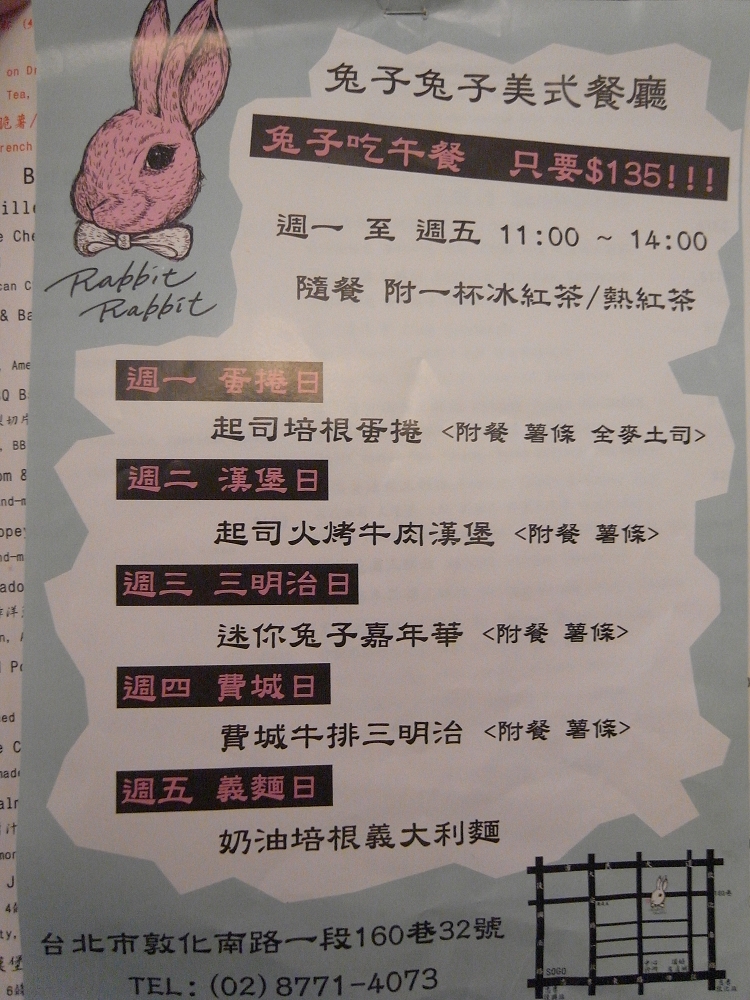 兔子兔子美式餐廳
兔子吃午餐 只要$135!!!
週一 至 週五 11:00 ~ 14:00
隨餐 附一杯冰紅茶/熱紅茶
Rabbit
Rabbit
週一 蛋捲日
起司培根蛋捲 <附餐 薯條 全麥土司>
週二 漢堡日
起司火烤牛肉漢堡 <附餐 薯條>
週三 三明治日
迷你兔子嘉年華 <附餐 薯條>
週四 費城日
費城牛排三明治 <附餐 薯條>
週五 義麵日
奶油培根義大利麵
台北市敦化南路一段160巷32號
TEL: (02) 8771-4073
SOGO